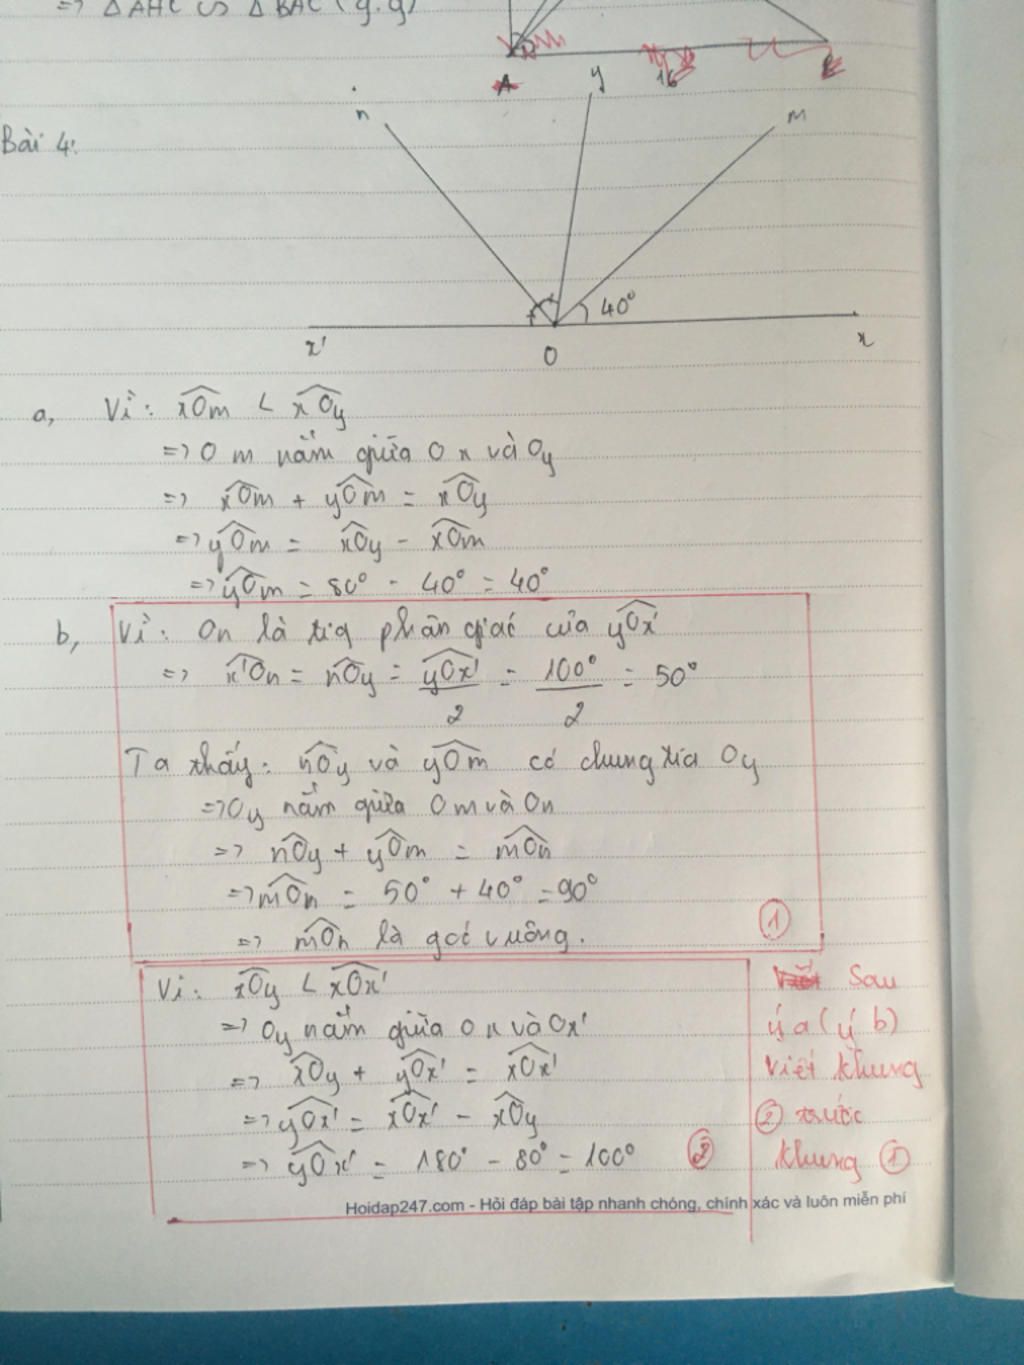 => △AHC ∽ △BAC (g.g)
A
16
B
Bài 4:
n
y
m
40°
x'
O
x
a, Vì: xOm < xOy
=> Om nằm giữa Ox và Oy
=> xOm + yOm = xOy
=> yOm = xOy - xOm
=> yOm = 80° - 40° = 40°
b, Vì: On là tia phân giác của yOx'
=> x'On = nOy = yOx'/2 = 100°/2 = 50°
Ta thấy: nOy và yOm có chung tia Oy
=> Oy nằm giữa Om và On
=> nOy + yOm = mOn
=> mOn = 50° + 40° = 90°
=> mOn là góc vuông.
①
Vì: xOy < xOx'
=> Oy nằm giữa Ox và Ox'
=> xOy + yOx' = xOx'
=> yOx' = xOx' - xOy
=> yOx' = 180° - 80° = 100°
②
Sau
ý a (ý b)
viết khung
② trước
khung ①
Hoidap247.com - Hỏi đáp bài tập nhanh chóng, chính xác và luôn miễn phí